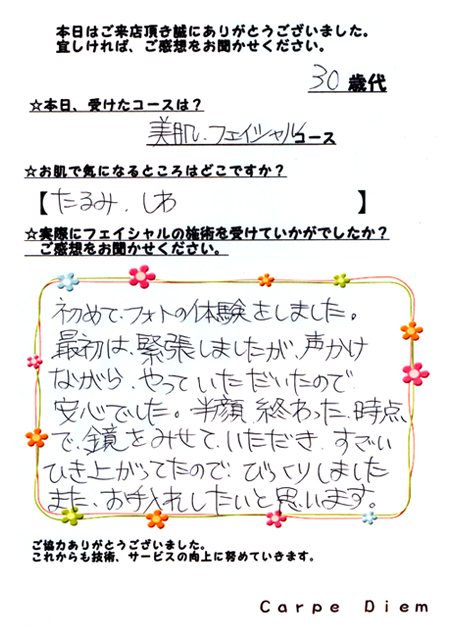 本日はご来店頂き誠にありがとうございました。
宜しければ、ご感想をお聞かせください。
30 歳代
☆本日、受けたコースは？
美肌、フェイシャルコース
☆お肌で気になるところはどこですか？
【たるみ、しわ】
☆実際にフェイシャルの施術を受けていかがでしたか？
ご感想をお聞かせください。
初めて、フォトの体験をしました。
最初は、緊張しましたが、声かけ
ながら、やっていただいたので
安心でした。半顔 終わった、時点
で、鏡をみせて、いただき、すごい
ひき上がってたので、びっくりしました
また、お手入れしたいと思います。
ご協力ありがとうございました。
これからも技術、サービスの向上に努めていきます。
Carpe Diem